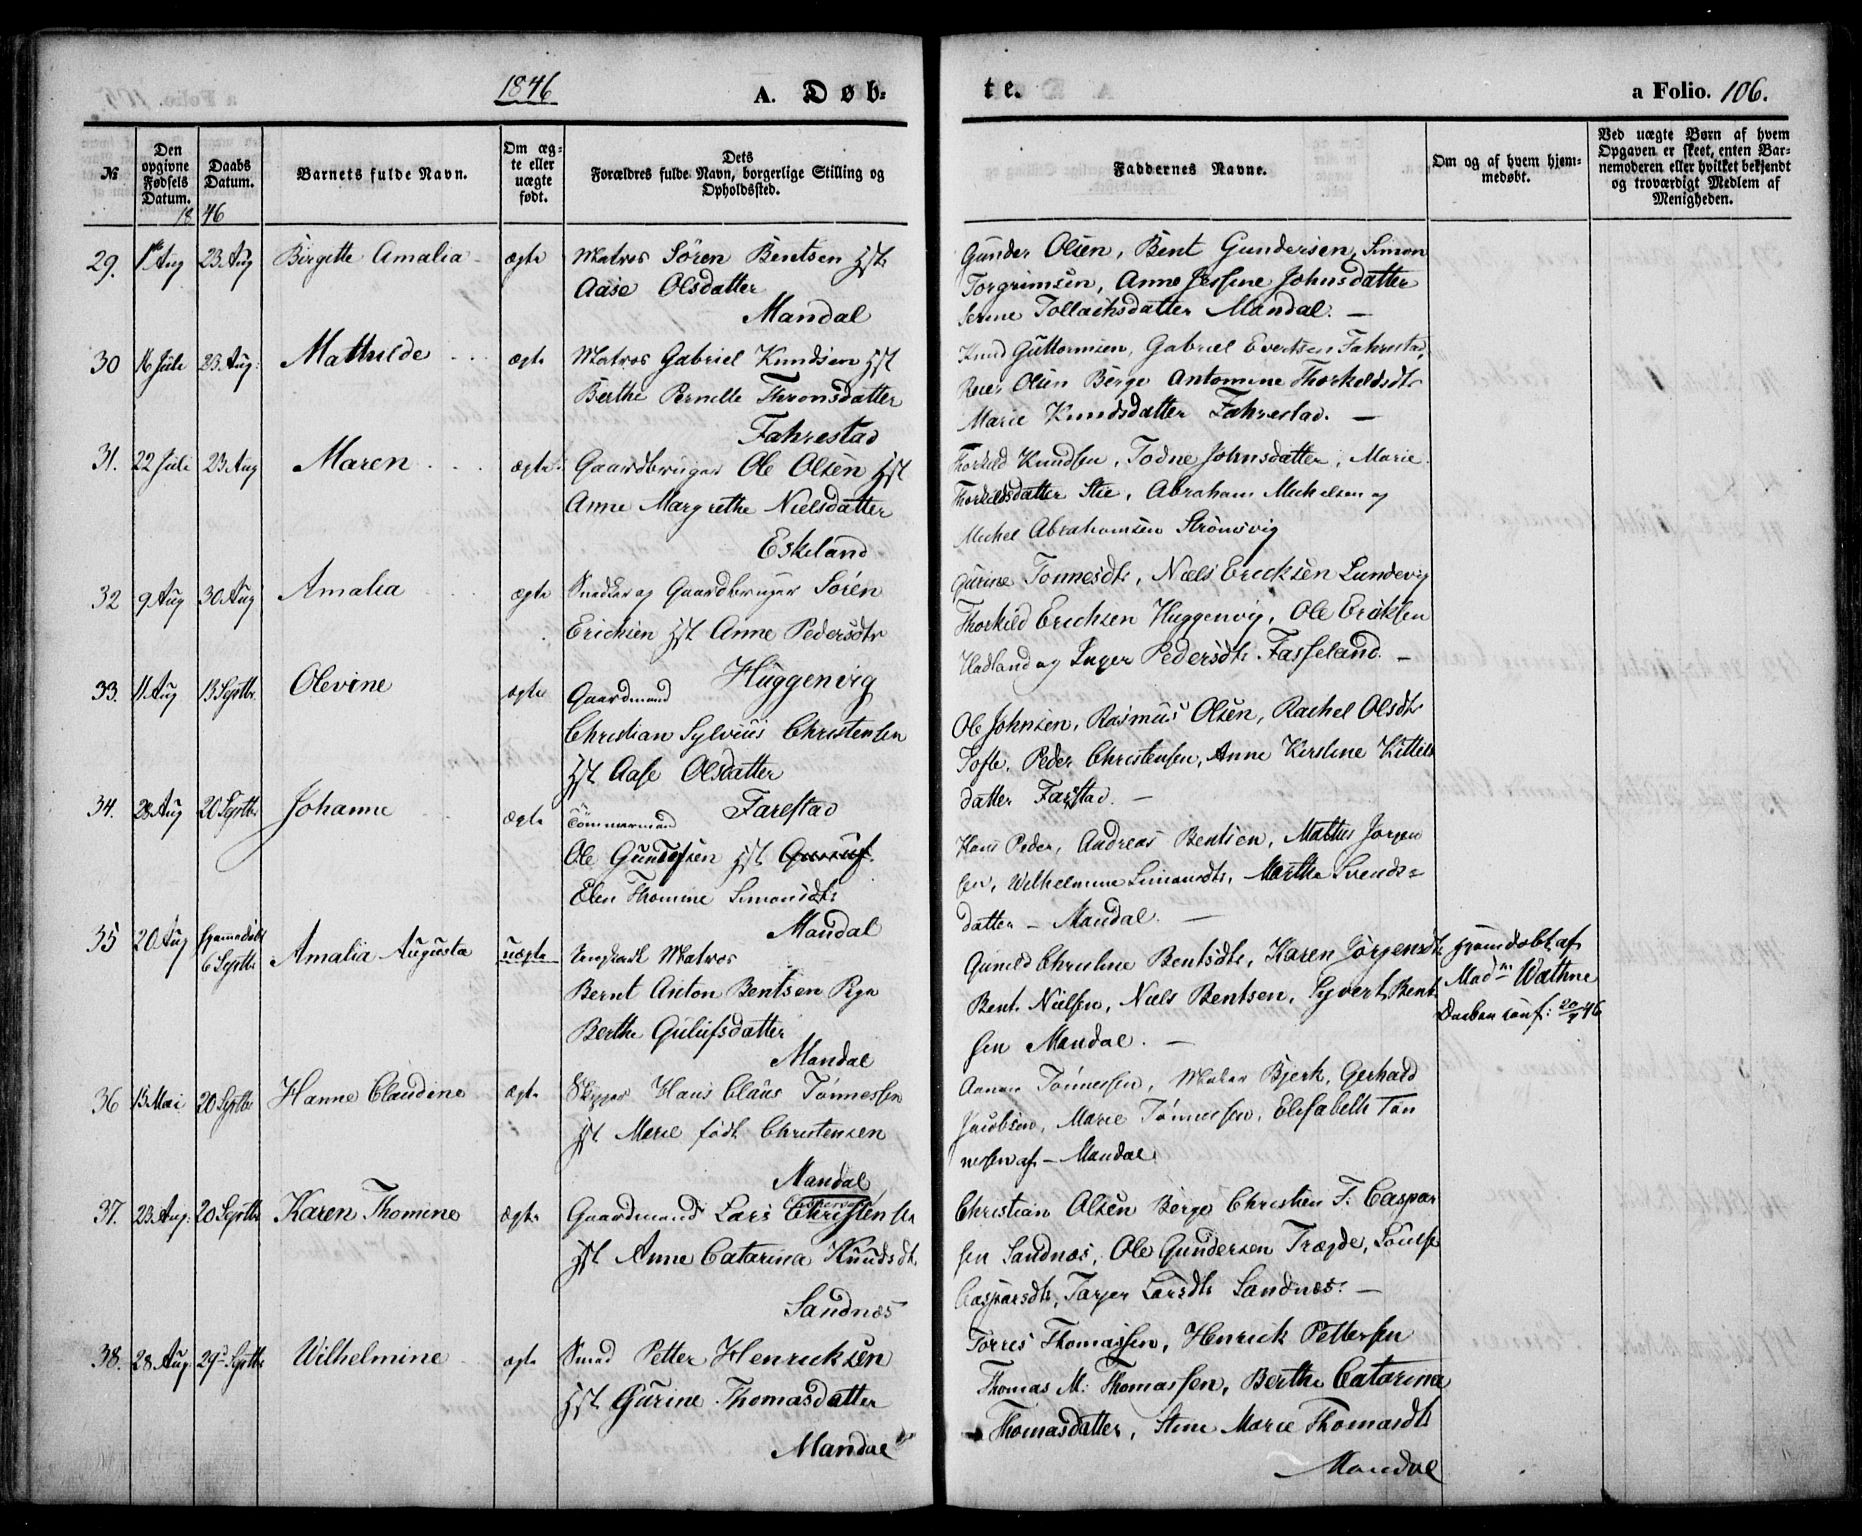 1846 A. Døb=
te. a Folio. 106.
№
Den opgivne Fødsels Datum.
Daabs Datum.
Barnets fulde Navn.
Om ægte eller uægte født.
Dets Forældres fulde Navn, borgerlige Stilling og Opholdssted.
Faddernes Navne.
Om og af hvem hjemmedøbt.
Ved uægte Børn af hvem Opgaven er skeet, enten Barnemoderen eller hvilket bekjendt og troværdigt Medlem af Menigheden.
1846
29. 1ste Aug 23 Aug Birgitte Amalia ægte Matros Sören Bentsen Hst
Aase Olsdatter
Mandal
Gunder Olsen, Bent Gundersen, Simon
Torgrimsen, Anne Jessine Johnsdatter
Serine Tollachsdatter Mandal. —
30 16 Juli 23 Aug: Mathilde ægte Matros Gabriel Knudsen Hst
Berthe Pernelle Thronsdatter
Fahrestad
Knud Guttormsen, Gabriel Evertsen Fahrestad,
Reier Olsen Berge Antomine Thorkeldsdtr
Marie Knudsdatter Fahrestad. —
31. 22 Juli 23 Aug Maren ægte Gaardbruger Ole Olsen Hst
Anne Margrethe Nielsdatter
Eskeland
Thorkild Knudsen, Todne Johnsdatter, Marie
Thorkildsdatter Stie, Abraham Michelsen og
Michel Abrahamsen Strømsvig
32 9 Aug 30 Aug Amalia ægte Snedker og Gaardbruger Sören
Erichsen Hst Anne Pedersdtr
Huggenvig
Gurine Tonnesdtr, Niels Ericksen Lundevig
Thorkild Erichsen Huggenvig, Ole Eriksen
Hadland og Inger Pedersdtr Fasseland. —
33. 11 Aug 13 Septbr Olevine ægte Gaardmand
Christian Sylvius Christensen
Hst Aase Olsdatter
Farestad
Ole Johnsen, Rasmus Olsen, Rachel Olsdtr
Tofte, Peder Christensen, Anne Kirstine Kittels
datter Farestad. —
34. 28 Aug 20 Septbr Johanne ægte Tömmermand
Ole Gundersen Hst
Elen Thomine Simonsdtr
Mandal
Hans Peder, Andreas Bentsen, Mathis Jörgen
sen, Wilhelmine Simonsdtr, Marthe Svends=
datter — Mandal. —
35 20 Aug hjemmedøbt
6 Septbr Amalia Augusta uægte Ungkarl Matros
Bernt Anton Bentsen Pige
Berthe Gulufsdatter
Mandal
Gunild Christine Bentsdtr, Karen Jørgensdtr
Bent Nielsen, Niels Bentsen, Syvert Bent
sen Mandal. —
Hjemdøbt af
Madm Wathne
Daaben conf: 20/9 46
36 15 Mai 20 Septbr Hanne Claudine ægte Skipper Hans Claus Tønnessen
Hst Marie födt Christensen
Mandal
Aanen Tönnessen, Bjerk, Gerhard
Jacobsen, Marie Tönnessen, Elisabeth Ton
nessen af — Mandal
37. 23 Aug: 20 Septbr Karen Thomine ægte Gaardmand Lars Christensen
Hst Anne Catarina Knudsdtr
Sandnæs
Christian Olsen Berge Christen F. Caspar
sen Sandnæs, Ole Gundersen Trægde, Louise
Casparsdtr, Tarjer Larsdtr Sandnæs. —
38. 28 Aug. 29d Septbr Wilhelmine ægte Smed Petter Henricksen
Hst Gurine Thomasdatter
Mandal
Torres Thomassen, Henrick Pettersen
Thomas M: Thomassen, Berthe Catarina
Thomasdatter, Stine Marie Thomasdtr
Mandal